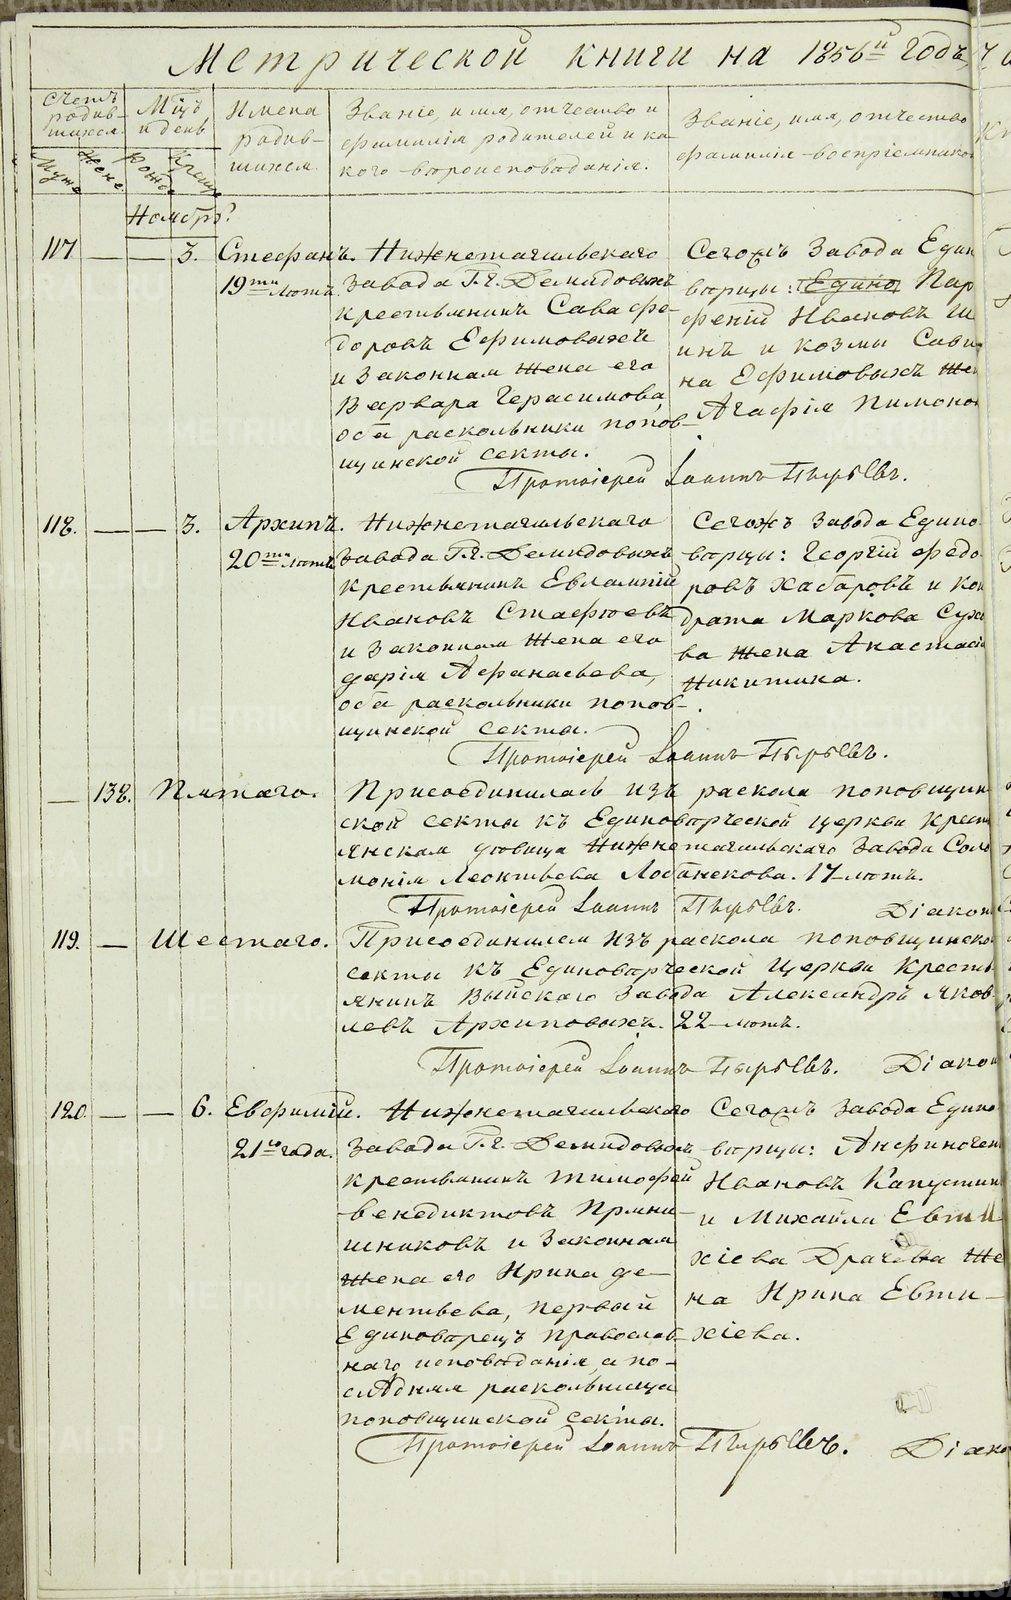 Метрической книги на 1856й годъ, ч
Счетъ родив-шихся.
Мужс. Женс.
Мцъ и день
Рожд. Крещ.
Имена родив-шихся.
Званіе, имя, отчество и фамилія родителей и ка-кого вѣроисповѣданія.
Званіе, имя, отчество фамилія воспріемнико
Ноябрь
117. — — 3. Стефанъ. Нижнетагильскаго
19ти лѣтъ. завода Г.г. Демидовыхъ
крестьянинъ Сава Фе-
доровъ Ефимовыхъ
и законная жена его
Варвара Герасимова,
оба раскольники попов-
щинской секты.
Сегожъ завода Един
вѣрцы: Едино Пар
феній Ивановъ Ш
инъ и Козмы Сави
на Ефимовыхъ же
Агафія Пимоно
Протоіерей Іоаннъ Пырьевъ.
118. — — 3. Архипъ. Нижнетагильскаго
20ти лѣтъ завода Г.г. Демидовыхъ
крестьянинъ Евлампій
Ивановъ Стафѣевъ
и законная жена его
Дарія Афанасьева,
оба раскольники попов-
щинской секты.
Сегожъ завода Едино
вѣрцы: Георгій Федо
ровъ Хабаровъ и Кон
драта Маркова Сухо
ва жена Анастасія
Никитина.
Протоіерей Іоаннъ Пырьевъ.
— 138. Пятаго. Присоединилась изъ раскола поповщин
ской секты къ Единовѣрческой церкви Крест
янская дѣвица Нижнетагильскаго завода Соло
монія Леонтьева Лобанскова. 17 лѣтъ.
Протоіерей Іоаннъ Пырьевъ. Діакон
119. — Шестаго. Присоединился изъ раскола поповщинско
секты къ Единовѣрческой Церкви Кресть
янинъ Выйскаго завода Александръ Яков
левъ Архиповыхъ. 22 лѣтъ.
Протоіерей Іоаннъ Пырьевъ. Діакон
120. — — 6. Евфимій. Нижнетагильскаго
21го года. завода Г.г. Демидовыхъ
крестьянинъ Тимофей
Венедиктовъ Пряни-
шниковъ и законная
жена его Ирина Де-
ментьева, первый
Единовѣрецъ православ-
наго исповѣданія, а по-
слѣдняя раскольница
поповщинской секты.
Сегожъ завода Едино
вѣрцы: Анфиноген
Ивановъ Капустин
и Михаила Евти
хіева Драчева же
на Ирина Евти-
хіева.
Протоіерей Іоаннъ Пырьевъ. Діако